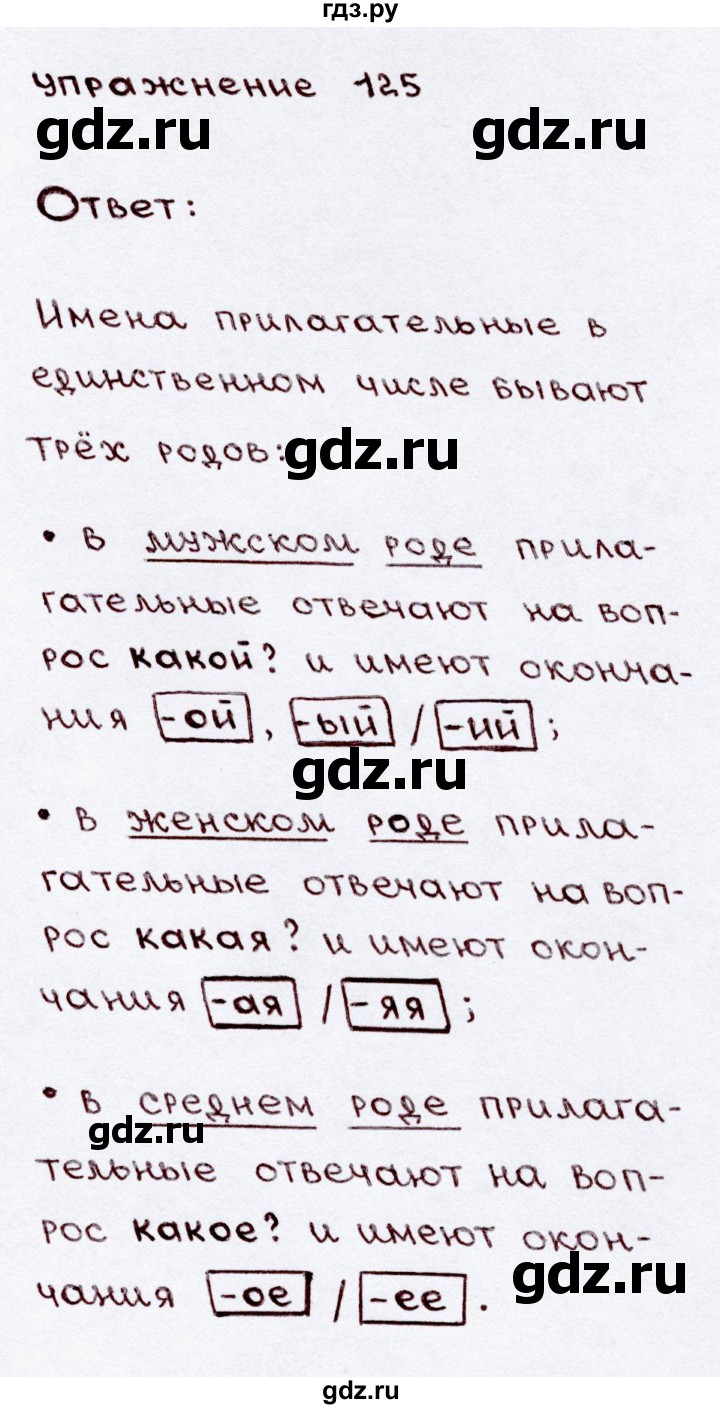 гдз.ру
упражнение 125
gdz.ru gdz.ru
Ответ:
Имена прилагательные в
единственном числе бывают
трёх родов:
gdz.ru
• в мужском роде прила-
гательные отвечают на воп-
рос какой? и имеют оконча-
ния -ой, -ый / -ий ;
gdz.ru
• в женском роде прила-
гательные отвечают на воп-
рос какая? и имеют окон-
чания -ая / -яя ;
• в среднем роде прилага-
gdz.ru
тельные отвечают на воп-
рос какое? и имеют окон-
gdz.ru
чания -ое / -ее .
gdz.ru